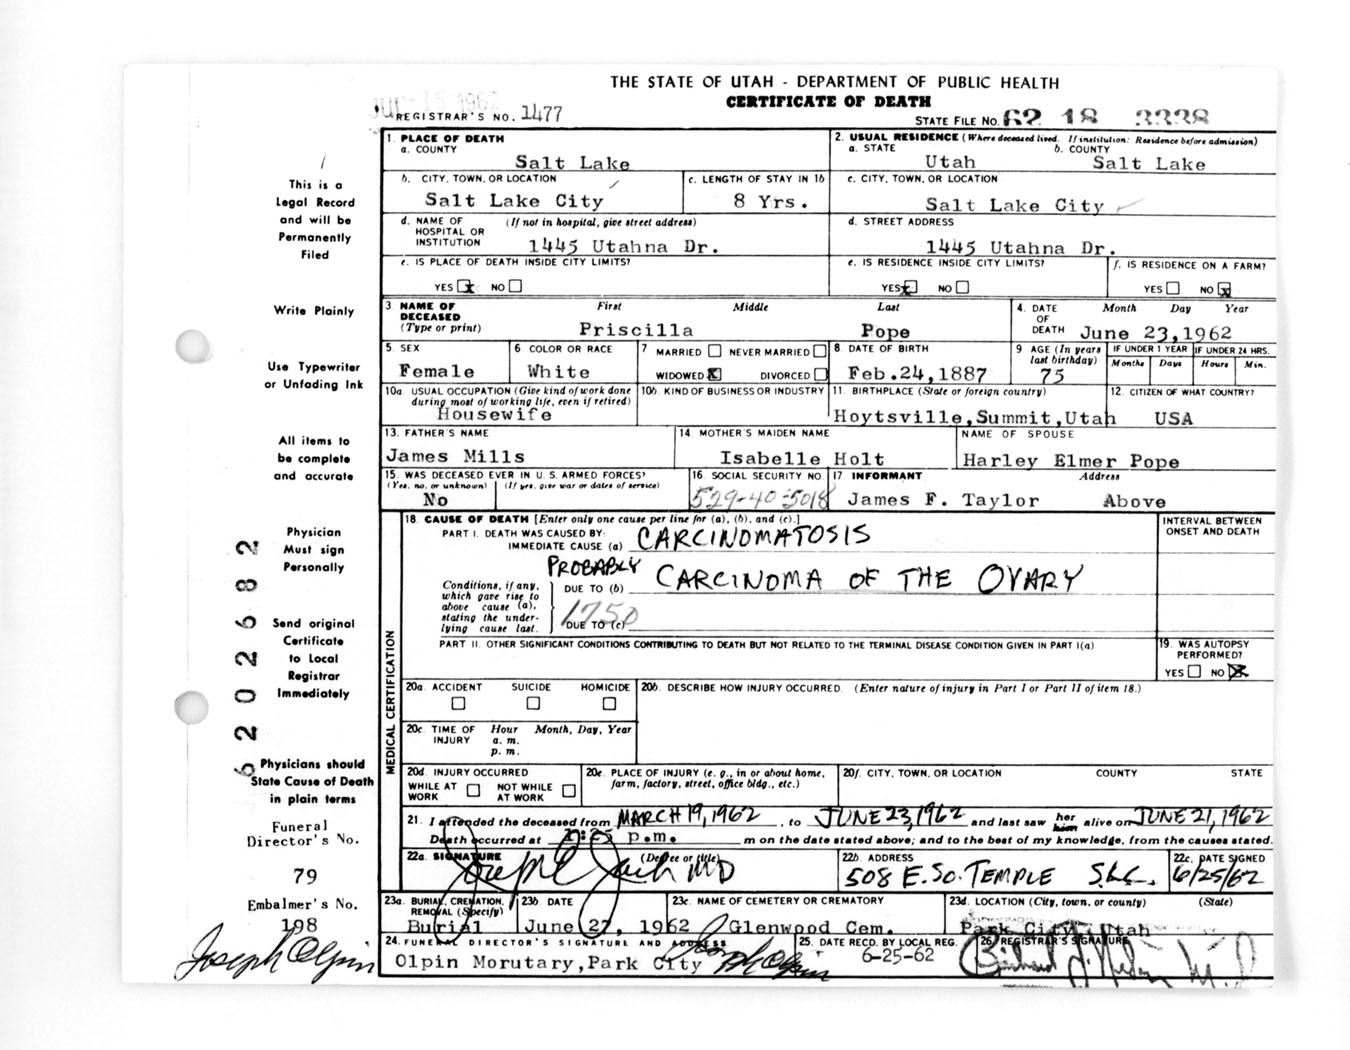 THE STATE OF UTAH - DEPARTMENT OF PUBLIC HEALTH
CERTIFICATE OF DEATH
15 1962
REGISTRAR'S NO. 1477
STATE FILE NO. 62 18 3338
1. PLACE OF DEATH
a. COUNTY
Salt Lake
2. USUAL RESIDENCE (Where deceased lived. If institution: Residence before admission)
a. STATE b. COUNTY
Utah Salt Lake
b. CITY, TOWN, OR LOCATION
Salt Lake City
c. LENGTH OF STAY IN 1b
8 Yrs.
c. CITY, TOWN, OR LOCATION
Salt Lake City
d. NAME OF HOSPITAL OR INSTITUTION (If not in hospital, give street address)
1445 Utahna Dr.
d. STREET ADDRESS
1445 Utahna Dr.
e. IS PLACE OF DEATH INSIDE CITY LIMITS?
YES x NO
e. IS RESIDENCE INSIDE CITY LIMITS?
YES x NO
f. IS RESIDENCE ON A FARM?
YES NO x
3 NAME OF DECEASED (Type or print)
First Middle Last
Priscilla Pope
4. DATE OF DEATH
Month Day Year
June 23,1962
5. SEX
Female
6 COLOR OR RACE
White
7 MARRIED NEVER MARRIED
WIDOWED X DIVORCED
8 DATE OF BIRTH
Feb.24,1887
9 AGE (In years last birthday)
75
IF UNDER 1 YEAR
Months Days
IF UNDER 24 HRS.
Hours Min.
10a. USUAL OCCUPATION (Give kind of work done during most of working life, even if retired)
Housewife
10b. KIND OF BUSINESS OR INDUSTRY
11. BIRTHPLACE (State or foreign country)
Hoytsville,Summit,Utah
12. CITIZEN OF WHAT COUNTRY?
USA
13. FATHER'S NAME
James Mills
14. MOTHER'S MAIDEN NAME
Isabelle Holt
NAME OF SPOUSE
Harley Elmer Pope
15. WAS DECEASED EVER IN U. S. ARMED FORCES?
(Yes, no, or unknown) (If yes, give war or dates of service)
No
16. SOCIAL SECURITY NO.
529-40-5018
17 INFORMANT Address
James F. Taylor Above
MEDICAL CERTIFICATION
18. CAUSE OF DEATH [Enter only one cause per line for (a), (b), and (c).]
PART I. DEATH WAS CAUSED BY:
IMMEDIATE CAUSE (a) CARCINOMATOSIS
INTERVAL BETWEEN ONSET AND DEATH
Conditions, if any, which gave rise to above cause (a), stating the underlying cause last.
PROBABLY
DUE TO (b) CARCINOMA OF THE OVARY
1750
DUE TO (c)
PART II. OTHER SIGNIFICANT CONDITIONS CONTRIBUTING TO DEATH BUT NOT RELATED TO THE TERMINAL DISEASE CONDITION GIVEN IN PART I(a)
19. WAS AUTOPSY PERFORMED?
YES NO X
20a. ACCIDENT SUICIDE HOMICIDE
20b. DESCRIBE HOW INJURY OCCURRED. (Enter nature of injury in Part I or Part II of item 18.)
20c. TIME OF INJURY Hour Month, Day, Year
a. m.
p. m.
20d. INJURY OCCURRED
WHILE AT WORK NOT WHILE AT WORK
20e. PLACE OF INJURY (e. g., in or about home, farm, factory, street, office bldg., etc.)
20f. CITY, TOWN, OR LOCATION COUNTY STATE
21. I attended the deceased from MARCH 19, 1962, to JUNE 23, 1962 and last saw her him alive on JUNE 21, 1962
Death occurred at :25 p.m. m on the date stated above; and to the best of my knowledge, from the causes stated.
22a. SIGNATURE (Degree or title)
MD
22b. ADDRESS
508 E. SO. TEMPLE S.L.C.
22c. DATE SIGNED
6/25/62
23a. BURIAL, CREMATION, REMOVAL (Specify)
Burial
23b. DATE
June 27, 1962
23c. NAME OF CEMETERY OR CREMATORY
Glenwood Cem.
23d. LOCATION (City, town, or county) (State)
Park City, Utah
24. FUNERAL DIRECTOR'S SIGNATURE AND ADDRESS
Olpin Morutary,Park City
25. DATE RECD. BY LOCAL REG.
6-25-62
26. REGISTRAR'S SIGNATURE
This is a
Legal Record
and will be
Permanently
Filed
Write Plainly
Use Typewriter
or Unfading Ink
All items to
be complete
and accurate
Physician
Must sign
Personally
Send original
Certificate
to Local
Registrar
Immediately
Physicians should
State Cause of Death
in plain terms
Funeral
Director's No.
79
Embalmer's No.
198
Joseph Olpin
6202682